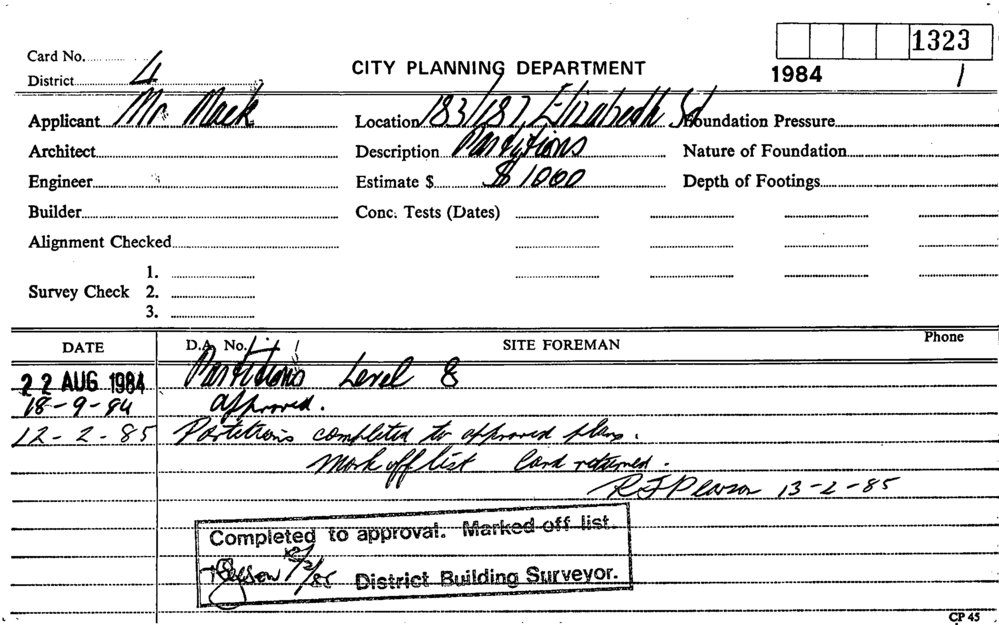 1323
Card No.
CITY PLANNING DEPARTMENT
1984 1
District 4
Applicant Mr Mack Location 183/187, Elizabeth St Foundation Pressure
Architect Description Partitions Nature of Foundation
Engineer Estimate $ $1000 Depth of Footings
Builder Conc. Tests (Dates)
Alignment Checked
1.
Survey Check 2.
3.
DATE D.A. No. SITE FOREMAN Phone
22 AUG 1984 Partitions Level 8
18-9-84 approved.
12-2-85 Partitions completed to approved plans.
Mark off list Card returned.
RJ Pearson 13-2-85
Completed to approval. Marked off list.
District Building Surveyor.
CP 45